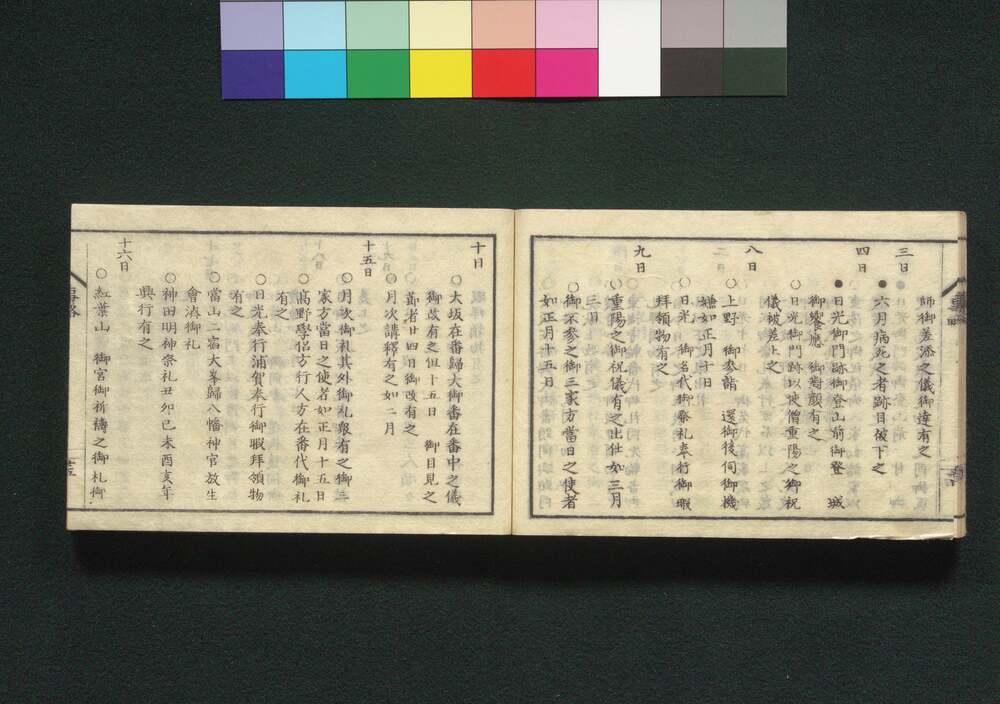 師御差添之儀御達有之
三日
●六月病死之者跡目被下之
四日
●日光御門跡御登山前御登　城
御饗應　御對顔有之
○日光御門跡以使僧重陽之御祝
儀被差上之
八日
○上野　御參詣　還御後伺御機
嫌如正月十日
○日光　御名代御祭礼奉行御暇
拜領物有之
九日
○重陽之御祝儀有之出仕如三月
三日
○御不參之御三家方當日之使者
如正月十五日
十日
○大坂在番歸大御番在番中之儀
御改有之但十五日　御目見之
節者廿四日御改有之
○月次講釋有之如二月
十五日
○月次御礼其外御礼衆有之御三
家方當日之使者如正月十五日
○高野學侶方行人方在番代御礼
有之
○日光奉行浦賀奉行御暇拜領物
有之
○當山二宿大峯歸八幡神官放生
會濟御礼
○神田明神祭礼丑卯巳未酉亥年
興行有之
十六日
○紅葉山　御宮御祈禱之御札御